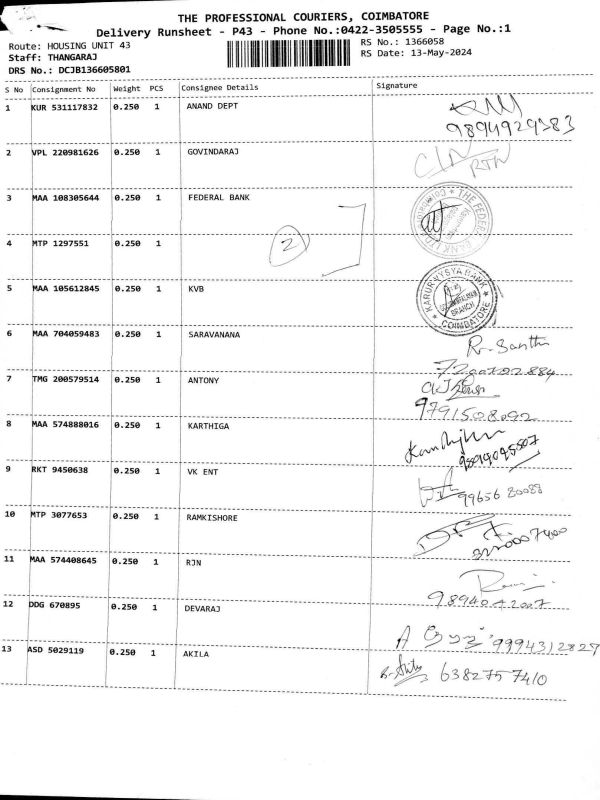 THE PROFESSIONAL COURIERS, COIMBATORE
Delivery Runsheet - P43 - Phone No.:0422-3505555 - Page No.:1
Route: HOUSING UNIT 43
RS No.: 1366058
Staff: THANGARAJ
RS Date: 13-May-2024
DRS No.: DCJB136605801
S No Consignment No Weight PCS Consignee Details Signature
1 KUR 531117832 0.250 1 ANAND DEPT
2 VPL 220981626 0.250 1 GOVINDARAJ
3 MAA 108305644 0.250 1 FEDERAL BANK
2
4 MTP 1297551 0.250 1
5 MAA 105612845 0.250 1 KVB
KARUR VYSYA BANK
BRANCH
COIMBATORE
6 MAA 704059483 0.250 1 SARAVANANA
7 TMG 200579514 0.250 1 ANTONY
9791508092
8 MAA 574888016 0.250 1 KARTHIGA
9 RKT 9450638 0.250 1 VK ENT
99656 80088
10 MTP 3077653 0.250 1 RAMKISHORE
11 MAA 574408645 0.250 1 RJN
12 DDG 670895 0.250 1 DEVARAJ
9994312827
13 ASD 5029119 0.250 1 AKILA
6382757410